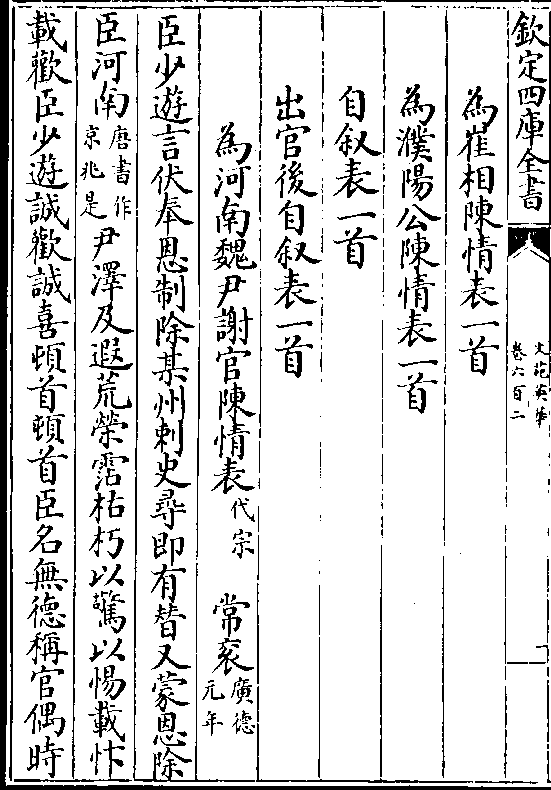 欽定四庫全書
文苑英華
卷六百二
一
為崔相陳情表一首
為濮陽公陳情表一首
自叙表一首
出官後自叙表一首
為河南魏尹謝官陳情表代宗 常衮廣德元年
臣少遊言伏奉恩制除某州刺史尋即有替又蒙恩除
臣河南唐書作京兆是尹澤及遐荒榮霑枯朽以驚以惕載忭
載歡臣少遊誠歡誠喜頓首頓首臣名無德稱官偶時